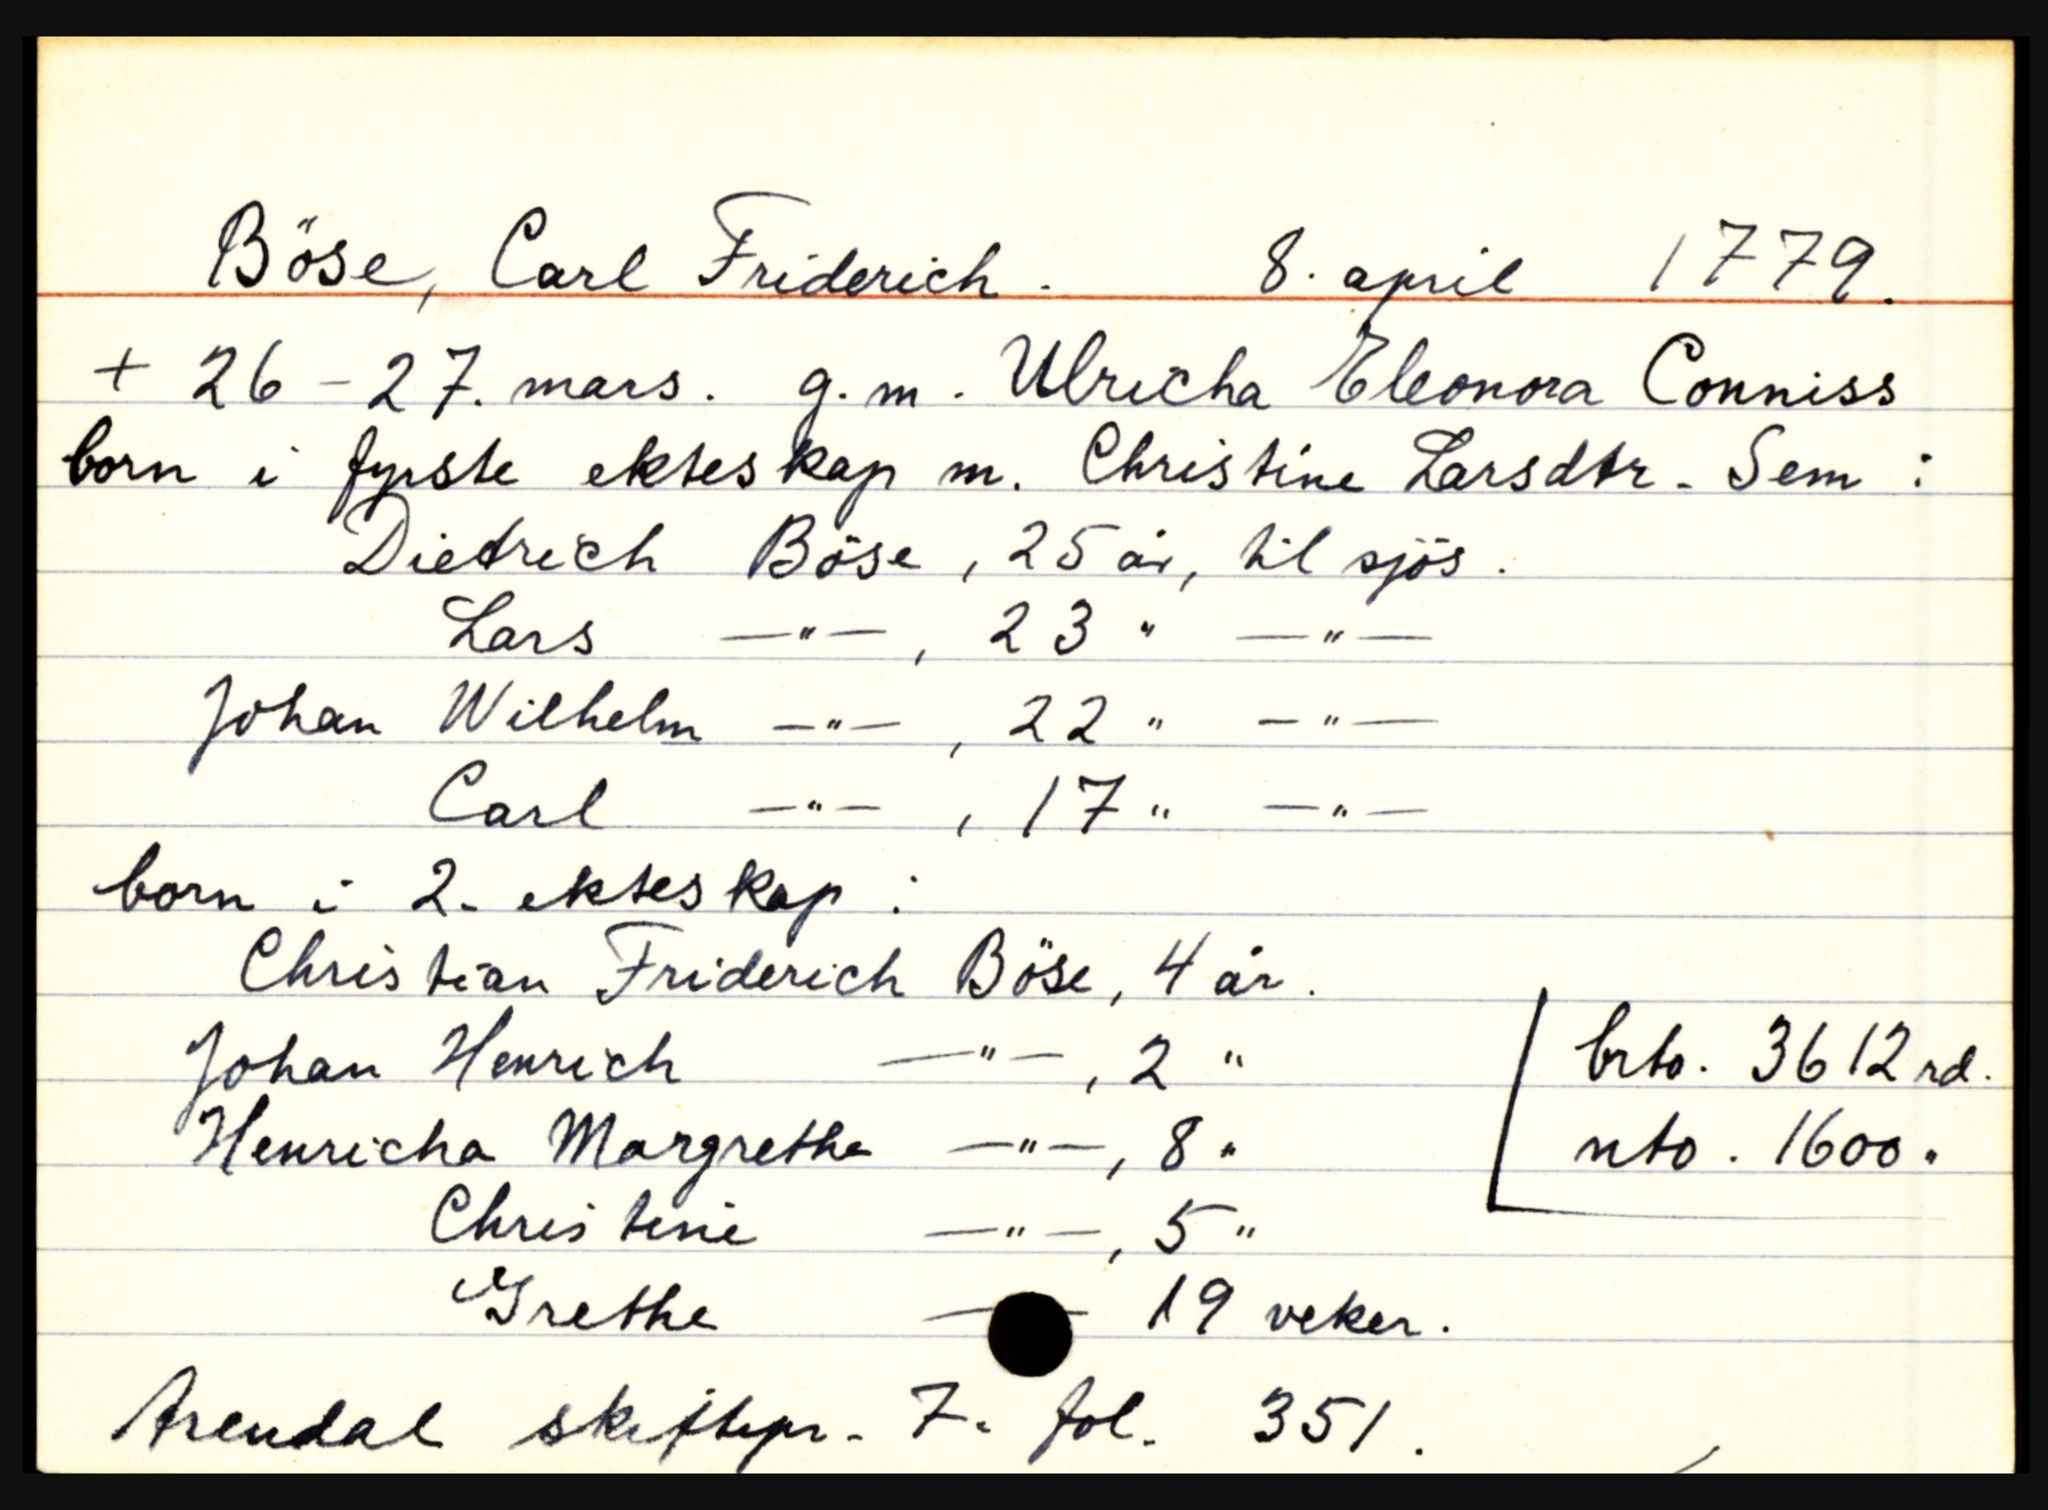 Böse, Carl Friderich. 8. april 1779.
+ 26-27. mars. g.m. Ulricha Eleonora Conniss
born i fyrste ekteskap m. Christine Larsdtr. Sem :
Dietrich Böse, 25 år, til sjös.
Lars —"—, 23 " —"—
Johan Wilhelm —"—, 22 " —"—
Carl —"—, 17 " —"—
born i 2. ekteskap :
Christian Friderich Böse, 4 år.
Johan Henrich —"—, 2 " brto. 3612 rd.
Henricha Margrethe —"—, 8 " nto. 1600 "
Christine —"—, 5 "
Grethe — — 19 veker.
Arendal skiftepr. 7. fol. 351.